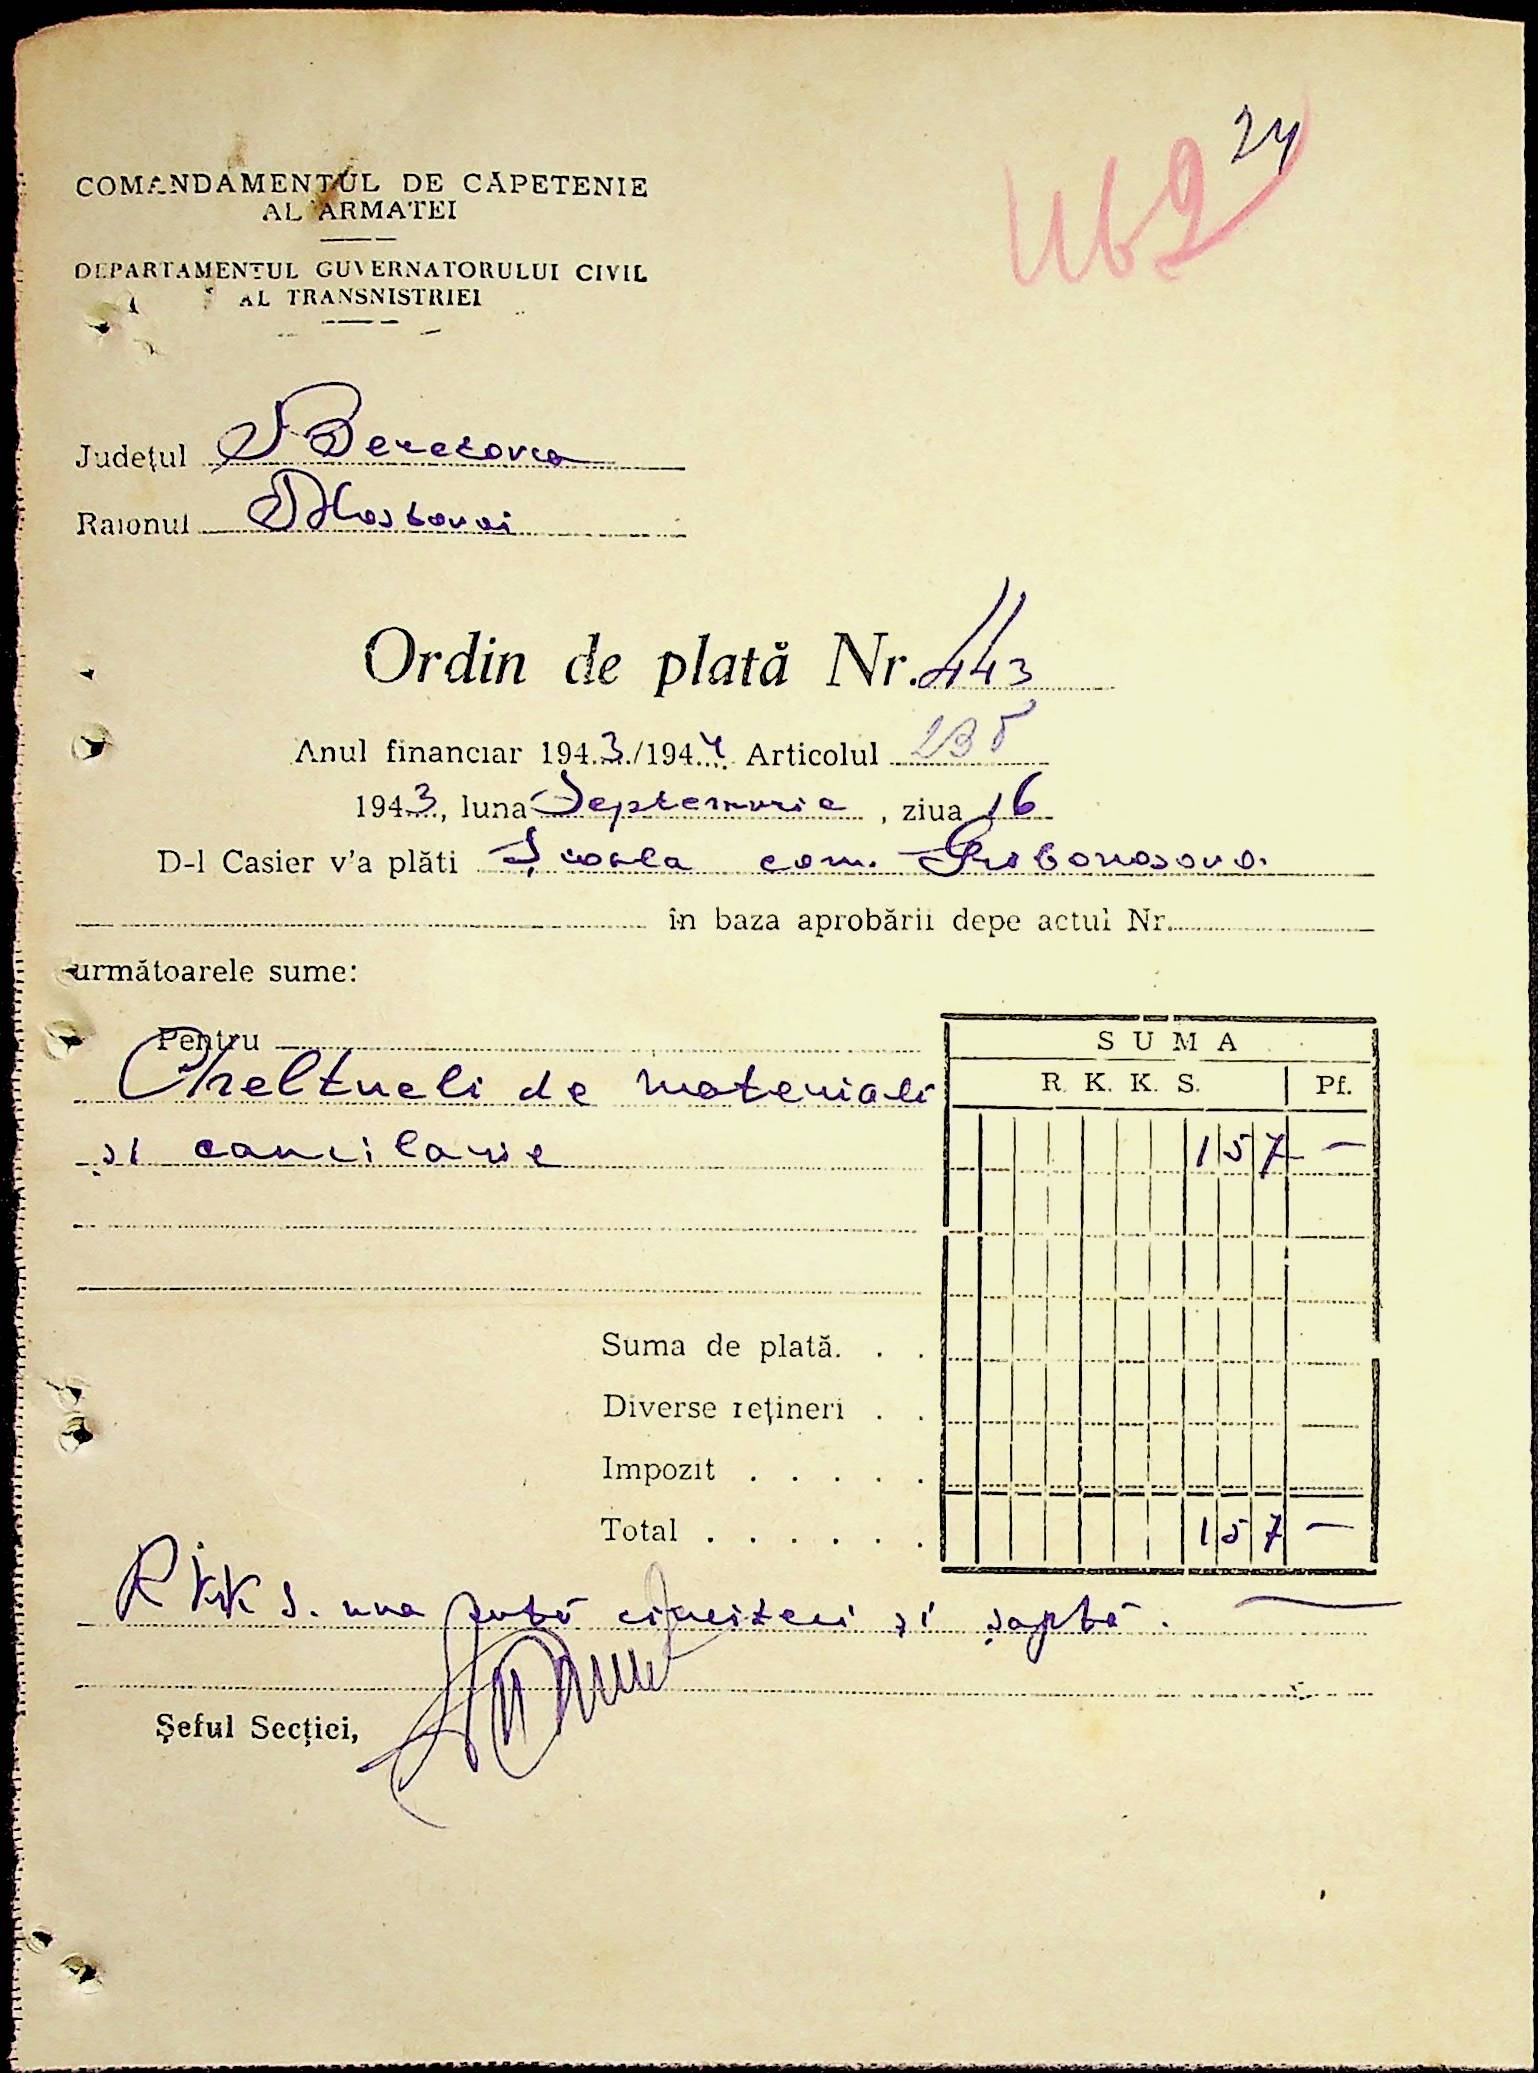 24
462
COMANDAMENTUL DE CAPETENIE
AL ARMATEI
DEPARTAMENTUL GUVERNATORULUI CIVIL
AL TRANSNISTRIEI
Județul Berezovca
Raionul Mostovoi
Ordin de plată Nr. 443
Anul financiar 1943/1944 Articolul 235
1943, luna Septemvrie, ziua 16
D-l Casier v'a plăti Școala com.
în baza aprobării depe actul Nr.
următoarele sume:
Pentru
Cheltueli de materiale
și cancilarie
SUMA
R. K. K. S. Pf.
157 —
Suma de plată. . .
Diverse rețineri . .
Impozit . . . . .
Total . . . . . . 157 —
R K K S. una sută cincizeci și șapte. —
Șeful Secției,